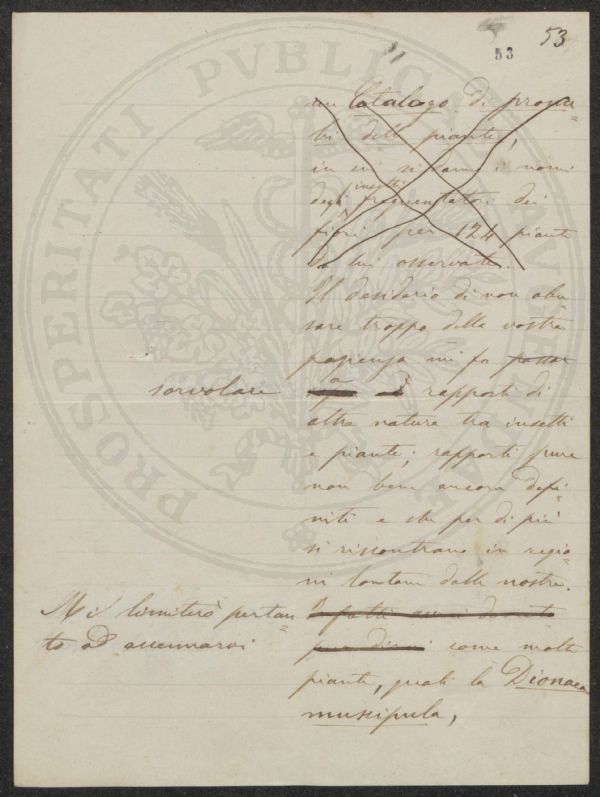 53
53
un Catalogo di pronu=
bi delle piante,
in cui si danno i nomi
degli insetti frequentatori dei
fiori per 124 piante
da lui osservate.
Il desiderio di non abu=
sare troppo della vostra
pazienza mi fa passar
sorvolare
rapporti di
altra natura tra insetti
e piante; rapporti pure
non bene ancora defi=
niti e che per di più
si riscontrano in regio=
ni lontane dalle nostre.
Mi limiterò pertan=
to ad accennarvi
come molte
piante, quali la Dionaea
muscipula,
PROSPERITATI PVBLICAE AVGENDAE